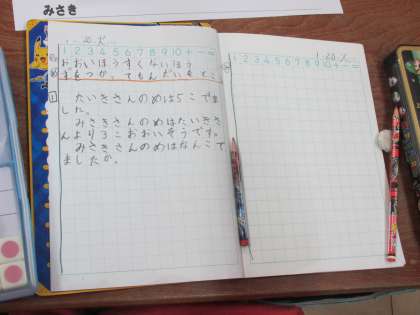 みさき
1.20 火
1 2 3 4 5 6 7 8 9 10 + - =
おおいほうすくないほう
ずをつかってもんだいをとこ
たいきさんのめは5こでま
した。
みさきさんのめはたいきさ
んより3こおおいそうです。
みさきさんのめはなんこで
ましたか。
1.20 火
1 2 3 4 5 6 7 8 9 10 + - =